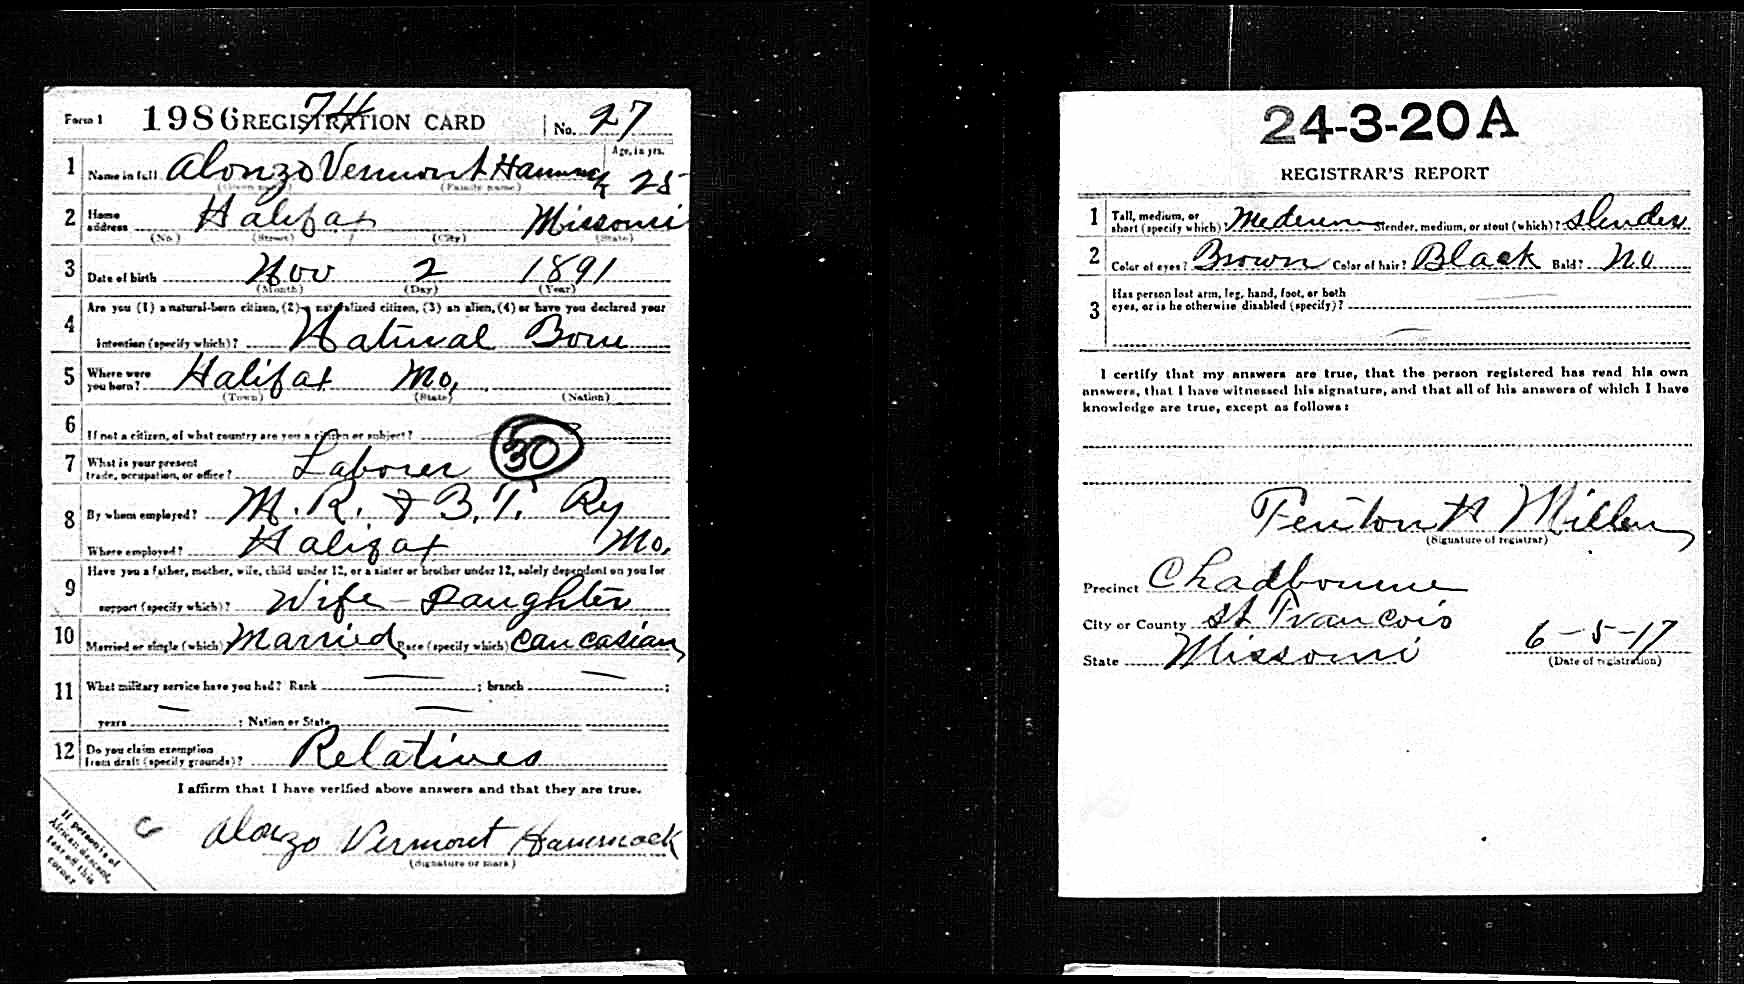 Form 1 1986 REGISTRATION CARD No. 27
74
Age, in yrs.
1 Name in full Alonzo Vermont Hammack 25
(Given name) (Family name)
2 Home address Halifax Missouri
(No.) (Street) (City) (State)
3 Date of birth Nov 2 1891
(Month) (Day) (Year)
Are you (1) a natural-born citizen, (2) a naturalized citizen, (3) an alien, (4) or have you declared your
4 intention (specify which)? Natural Born
5 Where were you born? Halifax Mo.
(Town) (State) (Nation)
6 If not a citizen, of what country are you a citizen or subject?
30
7 What is your present trade, occupation, or office? Laborer
8 By whom employed? M. R. & B. T. Ry
Where employed? Halifax Mo.
Have you a father, mother, wife, child under 12, or a sister or brother under 12, solely dependent on you for
9 support (specify which)? Wife - Daughter
10 Married or single (which) Married Race (specify which) Caucasian
11 What military service have you had? Rank ; branch ;
years ; Nation or State
12 Do you claim exemption from draft (specify grounds)? Relatives
I affirm that I have verified above answers and that they are true.
Alonzo Vermont Hammack
(Signature or mark)
If person is of
African descent,
tear off this
corner
24-3-20 A
REGISTRAR'S REPORT
1 Tall, medium, or short (specify which) Medium Slender, medium, or stout (which)? Slender
2 Color of eyes? Brown Color of hair? Black Bald? No
3 Has person lost arm, leg, hand, foot, or both
eyes, or is he otherwise disabled (specify)?
I certify that my answers are true, that the person registered has read his own
answers, that I have witnessed his signature, and that all of his answers of which I have
knowledge are true, except as follows:
Fenton A Miller
(Signature of registrar)
Precinct Chadbourne
City or County St Francois
State Missouri 6-5-17
(Date of registration)